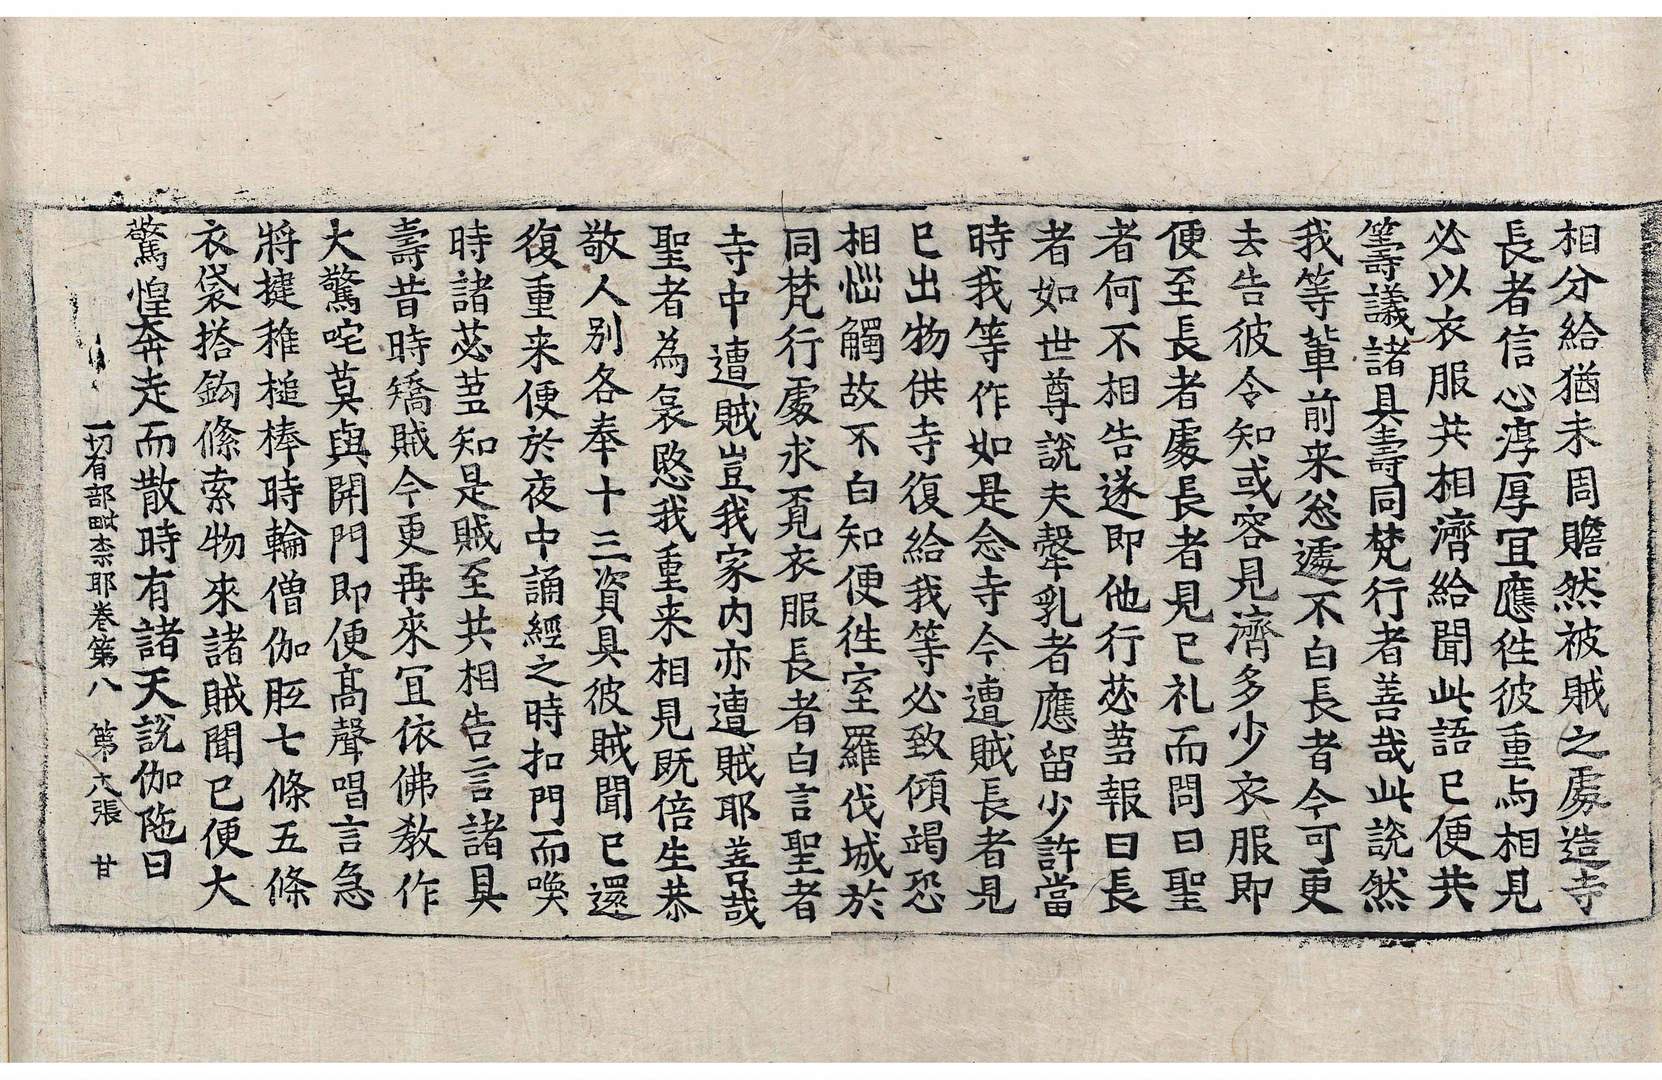 相分給猶未周贍然被賊之處造寺
長者信心淳厚宜應徃彼重与相見
必以衣服共相濟給聞此語已便共
籌議諸具壽同梵行者善哉此說然
我等輩前来怱遽不白長者今可更
去告彼令知或容見濟多少衣服即
便至長者處長者見已礼而問曰聖
者何不相告遂即他行苾蒭報曰長
者如世尊說夫犛乳者應留少許當
時我等作如是念寺今遭賊長者見
已出物供寺復給我等必致傾竭恐
相惱觸故不白知便徃室羅伐城於
同梵行處求覓衣服長者白言聖者
寺中遭賊豈我家内亦遭賊耶善哉
聖者為哀愍我重来相見既倍生恭
敬人別各奉十三資具彼賊聞已還
復重来便於夜中誦經之時扣門而喚
時諸苾蒭知是賊至共相告言諸具
壽昔時矯賊今更再來宜依佛教作
大驚咤莫與開門即便髙聲唱言急
將揵稚槌棒時輪僧伽胝七條五條
衣袋搭鈎絛索物來諸賊聞已便大
驚惶奔走而散時有諸天說伽陁曰
一切有部毗柰耶卷第八 第六張 甘